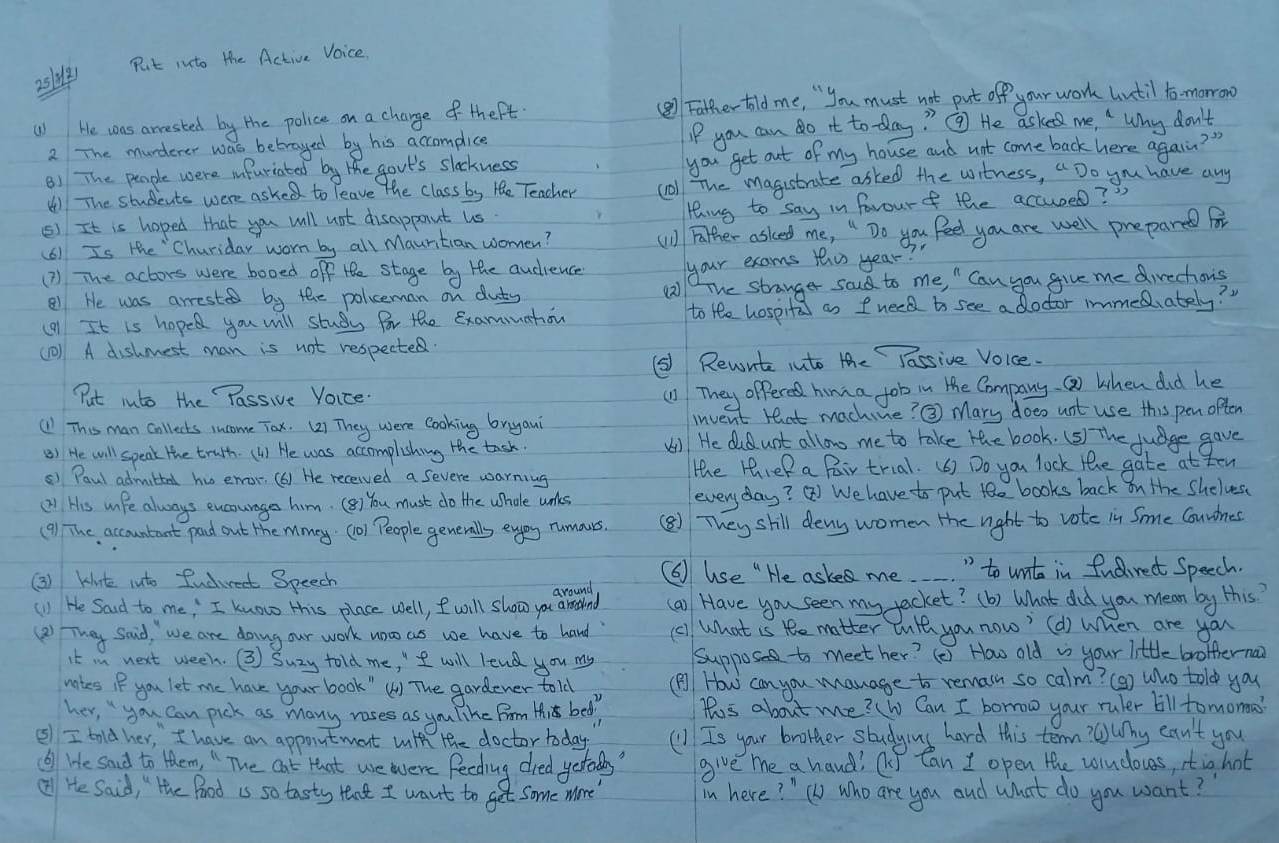 Put into the Active Voice.
25/8/21
(1) He was arrested by the police on a charge of theft.
2 The murderer was betrayed by his accomplice
(3) The people were infuriated by the govt's slackness
(4) The students were asked to leave the class by the Teacher
(5) It is hoped that you will not disappoint us.
(6) Is the "Churidar" worn by all Mauritian women?
(7) The actors were booed off the stage by the audience.
(8) He was arrested by the policeman on duty
(9) It is hoped you will study for the Examination
(10) A dishonest man is not respected.
Put into the Passive Voice.
(1) This man collects income Tax. (2) They were cooking bryani
(3) He will speak the truth. (4) He was accomplishing the task.
(5) Paul admitted his error. (6) He received a severe warning
(7) His wife always encourages him. (8) You must do the whole works
(9) The accountant paid out the money. (10) People generally enjoy rumours.
(3) Write into Indirect Speech
(1) He said to me, "I know this place well, I will show you around
(2) They said, "we are doing our work now as we have to hand
it in next week. (3) Suzy told me, "I will lend you my
notes if you let me have your book" (4) The gardener told
her, "you can pick as many roses as you like from this bed"
(5) I told her, "I have an appointment with the doctor today"
(6) He said to them, "The cat that we were feeding died yesterday"
(7) He said, "the food is so tasty that I want to get some more"
(8) Father told me, "You must not put off your work until to-morrow
if you can do it to-day." (9) He asked me, "Why don't
you get out of my house and not come back here again?"
(10) The magistrate asked the witness, "Do you have any
thing to say in favour of the accused?"
(11) Father asked me, "Do you feel you are well prepared for
your exams this year?"
(12) "The stranger said to me, "Can you give me directions
to the hospital as I need to see a doctor immediately?"
(5) Rewrite into the Passive Voice.
(1) They offered him a job in the Company. (2) When did he
invent that machine? (3) Mary does not use this pen often
(4) He did not allow me to take the book. (5) The judge gave
the thief a fair trial. (6) Do you lock the gate at ten
everyday? (7) We have to put the books back on the shelves
(8) They still deny women the right to vote in some Countries
(6) Use "He asked me ....." to write in Indirect Speech.
(a) Have you seen my jacket? (b) What did you mean by this?
(c) What is the matter with you now? (d) When are you
supposed to meet her? (e) How old is your little brother now
(f) How can you manage to remain so calm? (g) Who told you
this about me? (h) Can I borrow your ruler till tomorrow?
(i) Is your brother studying hard this term? (j) Why can't you
give me a hand? (k) Can I open the windows, it is hot
in here?" (l) Who are you and what do you want?